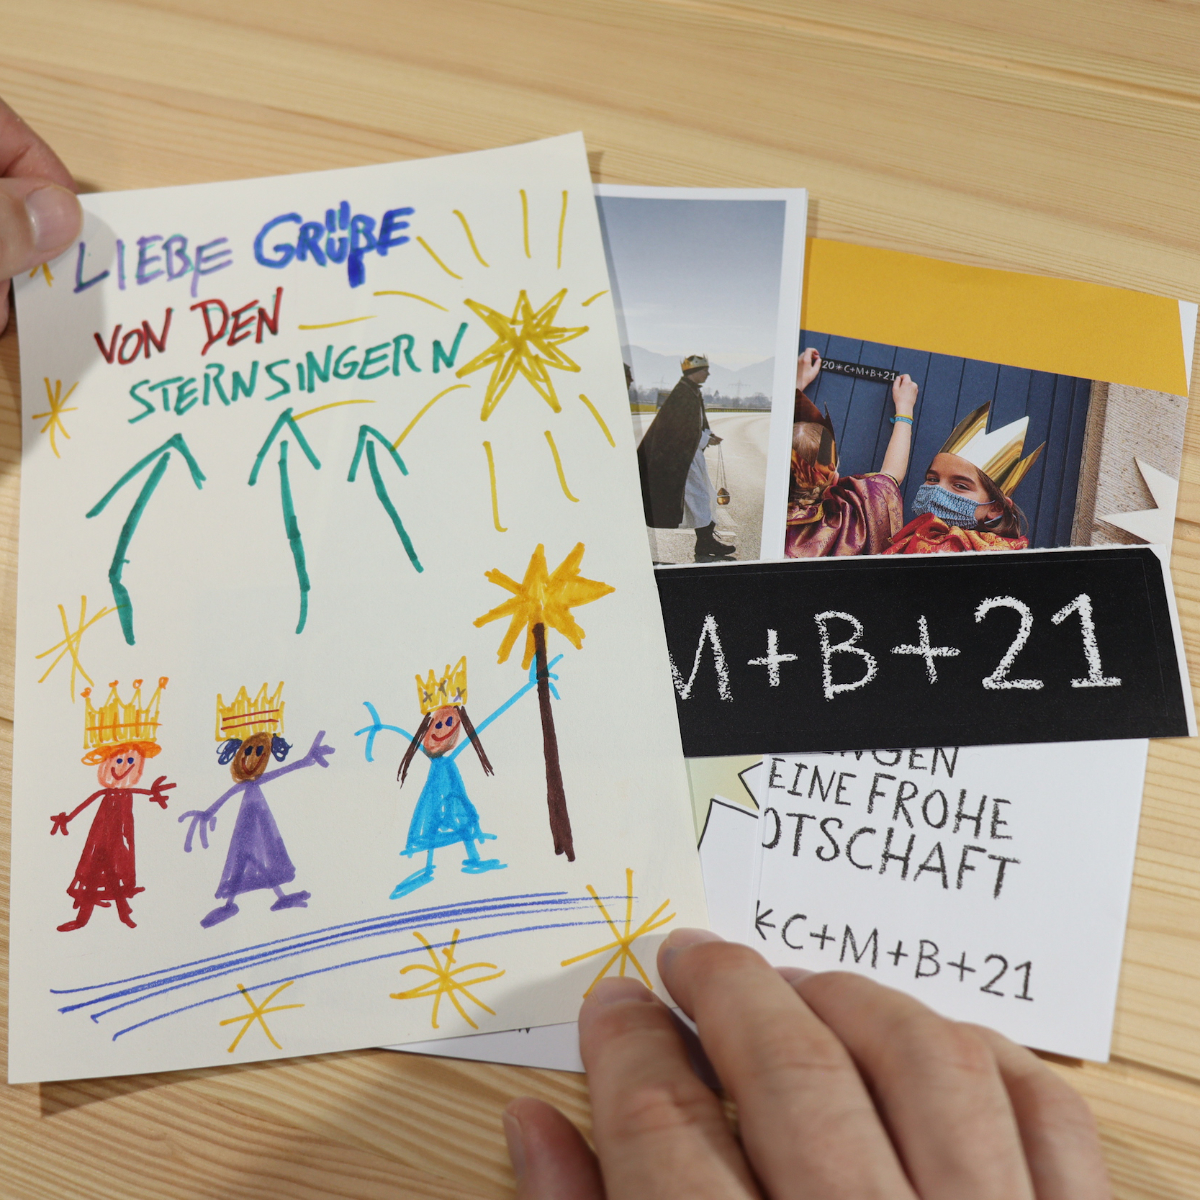 LIEBE GRÜßE
VON DEN
STERNSINGERN
20*C+M+B+21
M+B+21
EINE FROHE
OTSCHAFT
*C+M+B+21